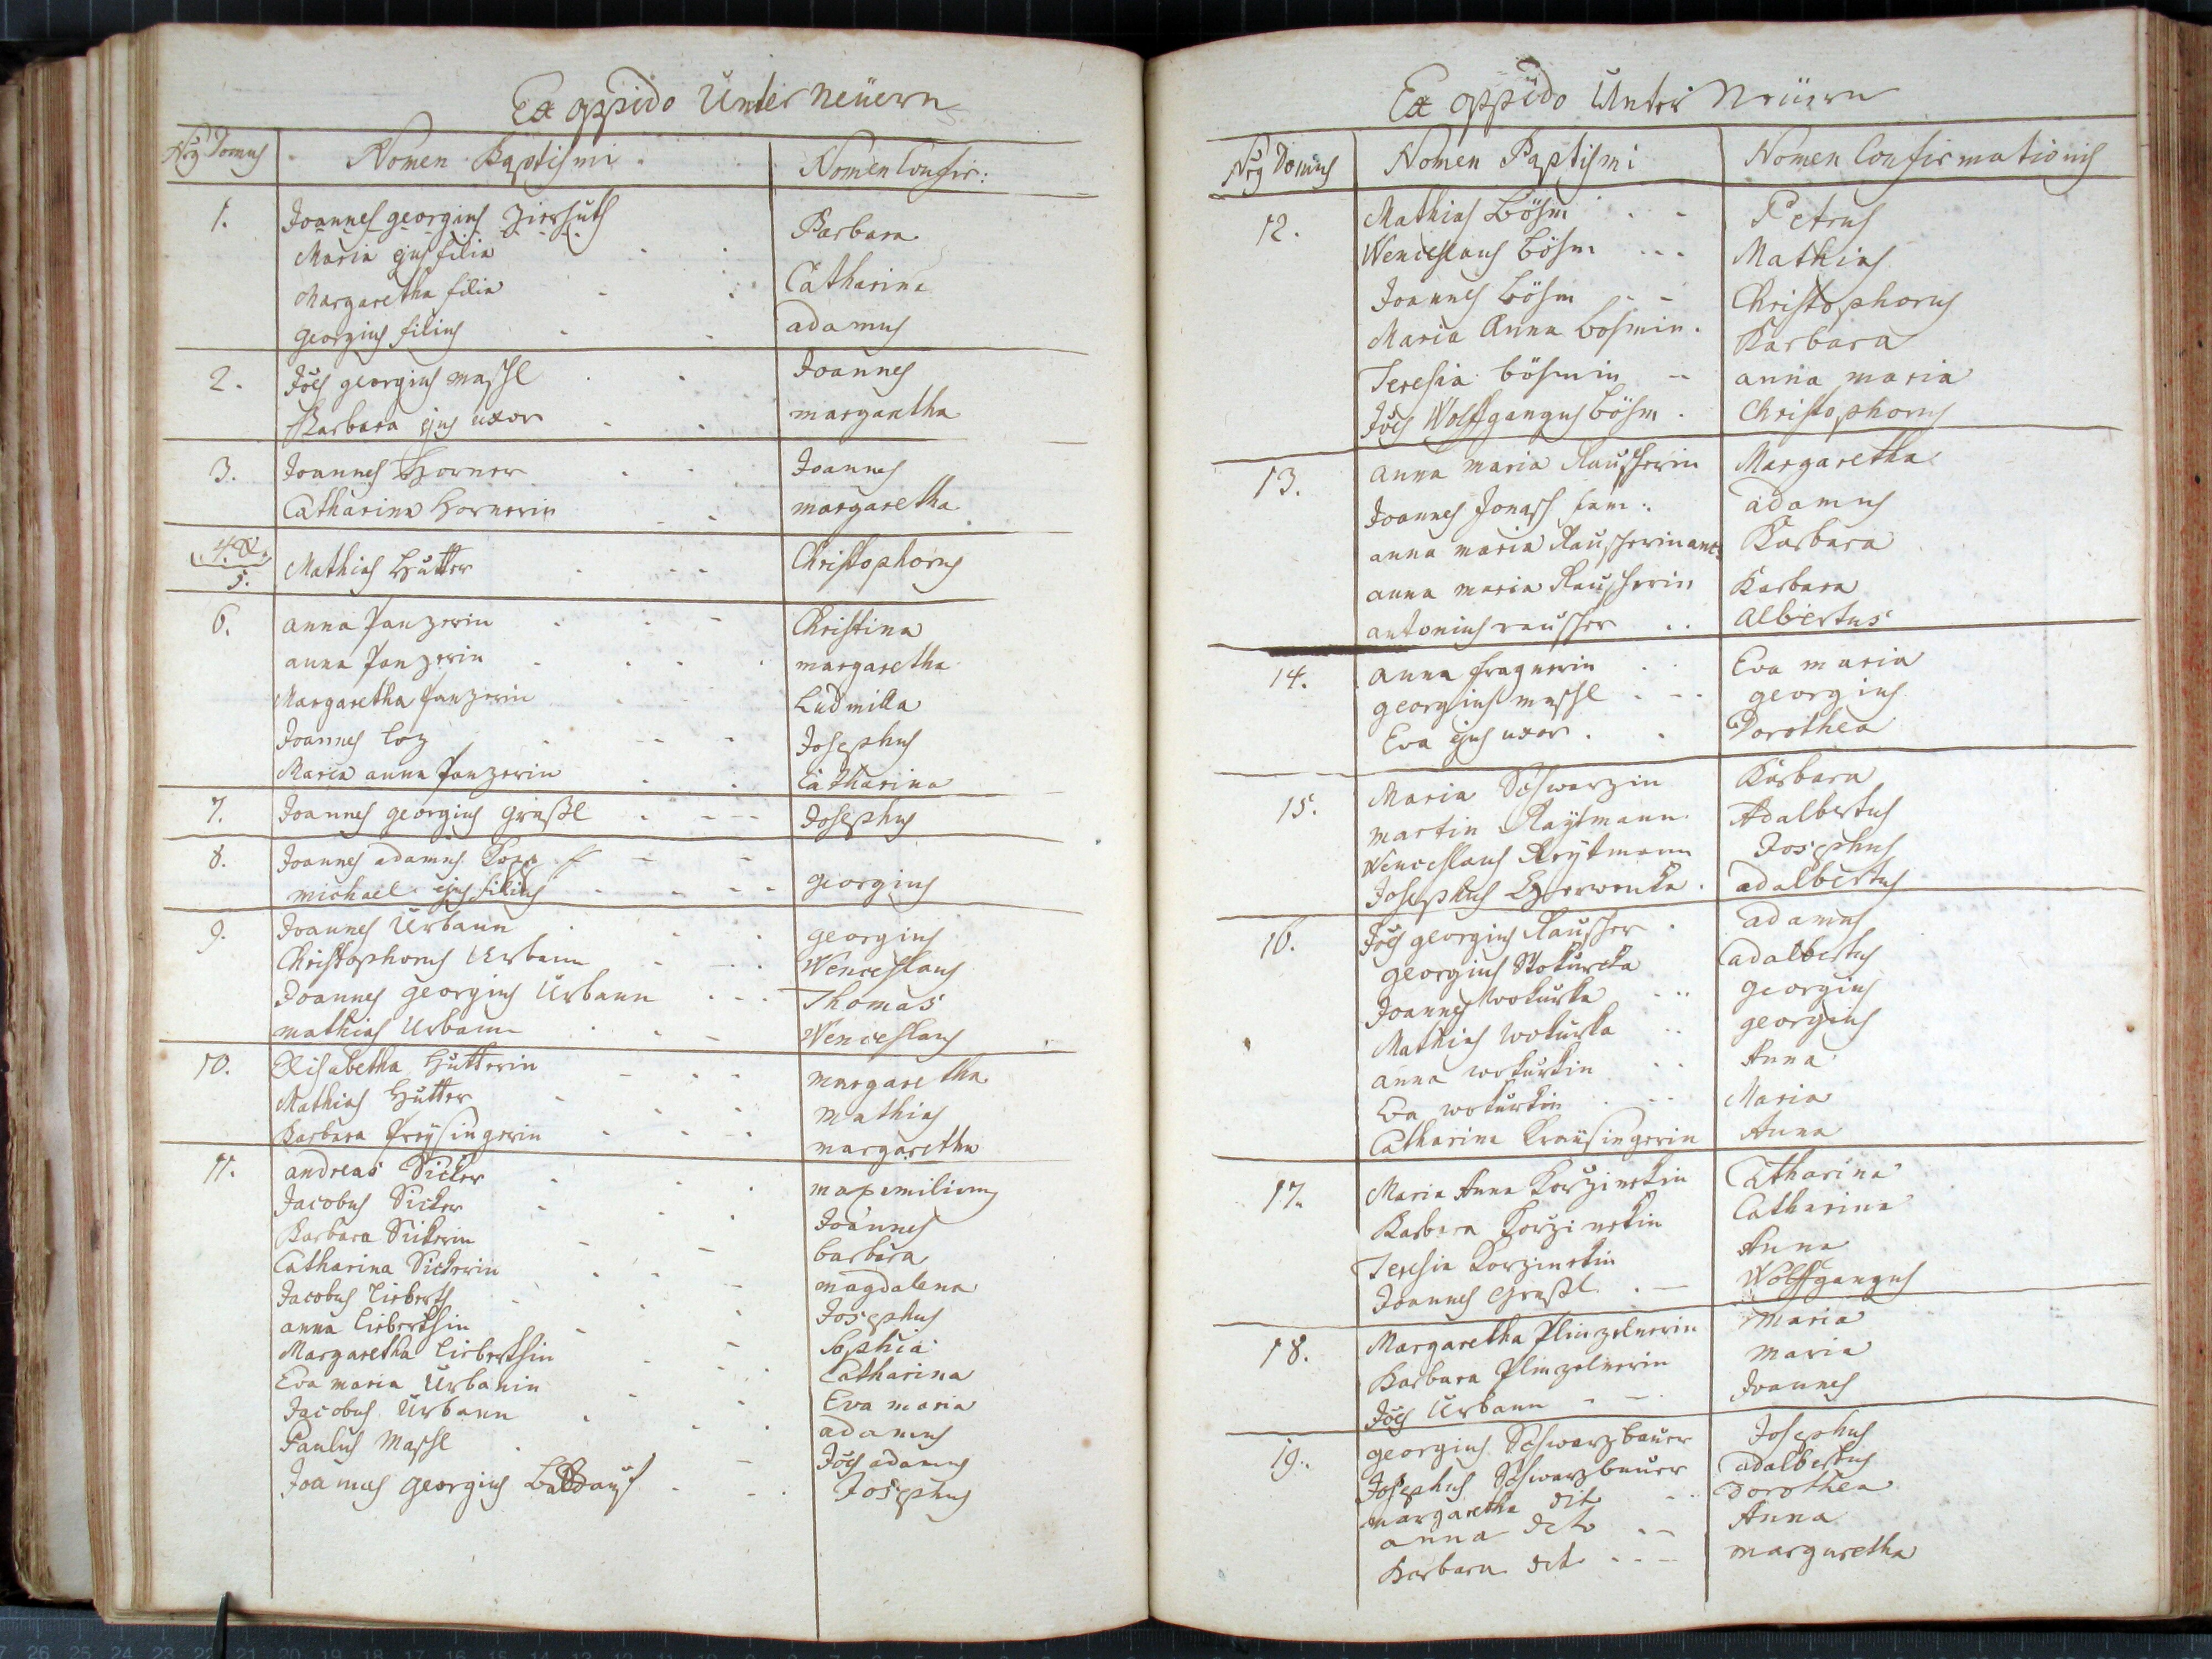 Ex oppido Unter Neuern
Nrg Domus Nomen Baptismi Nomen Confir:
1. Joannes georgius Zierhuth
Maria ejus filia Barbara
Margaretha filia Catharina
georgius filius adamus
2. Jões georgius maschl Joannes
Barbara ejus uxor margaretha
3. Joannes Horner Joannes
Catharina Hornerin margaretha
4. &
5. Mathias Hutter Christophorus
6. anna Panzerin Christina
anna Panzerin margaretha
Margaretha Panzerin Ludmilla
Joannes Josephus
Maria anna Panzerin Catharina
7. Joannes georgius Josephus
8. Joannes adamus
michael ejus filius georgius
9. Joannes Urbann georgius
Christophorus Urbann Wenceslaus
Joannes georgius Urbann Thomas
mathias Urbann Wenceslaus
10. Elisabetha Hutterin margaretha
Mathias Hutter mathias
Barbara Preysingerin margaretha
11. andreas Sicker maxemilianus
Jacobus Sicker Joannes
Barbara Sickerin barbara
Catharina Sickerin magdalena
Jacobus Lieberth Josephus
anna Lieberthin Sophia
Margaretha Lieberthin Catharina
Eva maria Urbanin Eva maria
Jacobus Urbann adamus
Paulus Maschl Jões adamus
Joannes georgius Josephus
Ex oppido Unter Neuern
Nrg Domus Nomen Baptismi Nomen Confirmationis
12. Mathias Böhm Petrus
Wenceslaus Böhm Mathias
Joannes Böhm Christophorus
Maria Anna Böhmin Barbara
Teresia böhmin anna maria
Jões Wolffgangus Böhm Christophorus
13. anna maria Rauscherin Margaretha
Joannes Jonasch fam: adamus
anna maria Rauscherin anc: Barbara
anna maria Rauscherin Barbara
antonius rauscher Albertus
14. anna Fragnerin Eva maria
georgius maschl georgius
Eva ejus uxor Dorothea
15. Maria Schwarzin Barbara
martin Raÿtmann Adalbertus
Wenceslaus Reÿtmann Josephus
Josephus Czerwenka adalbertus
16. Jões georgius Rauscher adamus
georgius adalbertus
Joannes Wokurka georgius
Mathias Wokurka georgius
anna wokurkin Anna
Eva wokurkin Maria
Catharina Anna
17. Maria Anna Korzinekin Catharina
Barbara Korzinekin Catharina
Teresia Korzinekin Anna
Joannes Wolffgangus
18. Margaretha Plinzelnerin Maria
Barbara Plinzelnerin Maria
Jões Urbann Joannes
19. georgius Schwarzbauer Josephus
Josephus Schwarzbauer adalbertus
margaretha dit Dorothea
anna deto Anna
Barbara deto margaretha